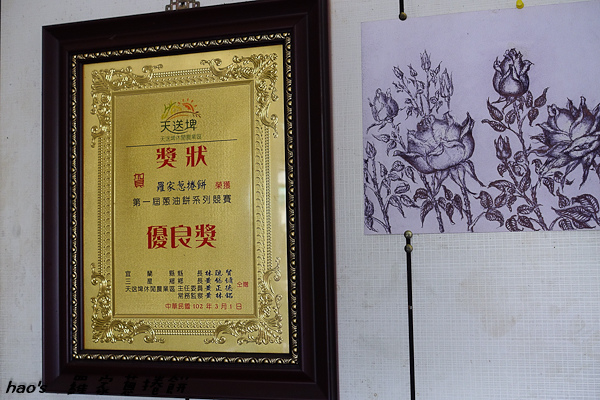 天送埤
天送埤休閒農業區
獎狀
賀 羅家蔥捲餅 榮獲
第一屆蔥油餅系列競賽
優良獎
宜蘭縣縣長林聰賢
三星鄉鄉長黃錫墉
天送埤休閒農業區 主任委員黃正德 仝贈
常務監察黃林鋁
中華民國102年3月1日
hao's 羅家蔥捲餅